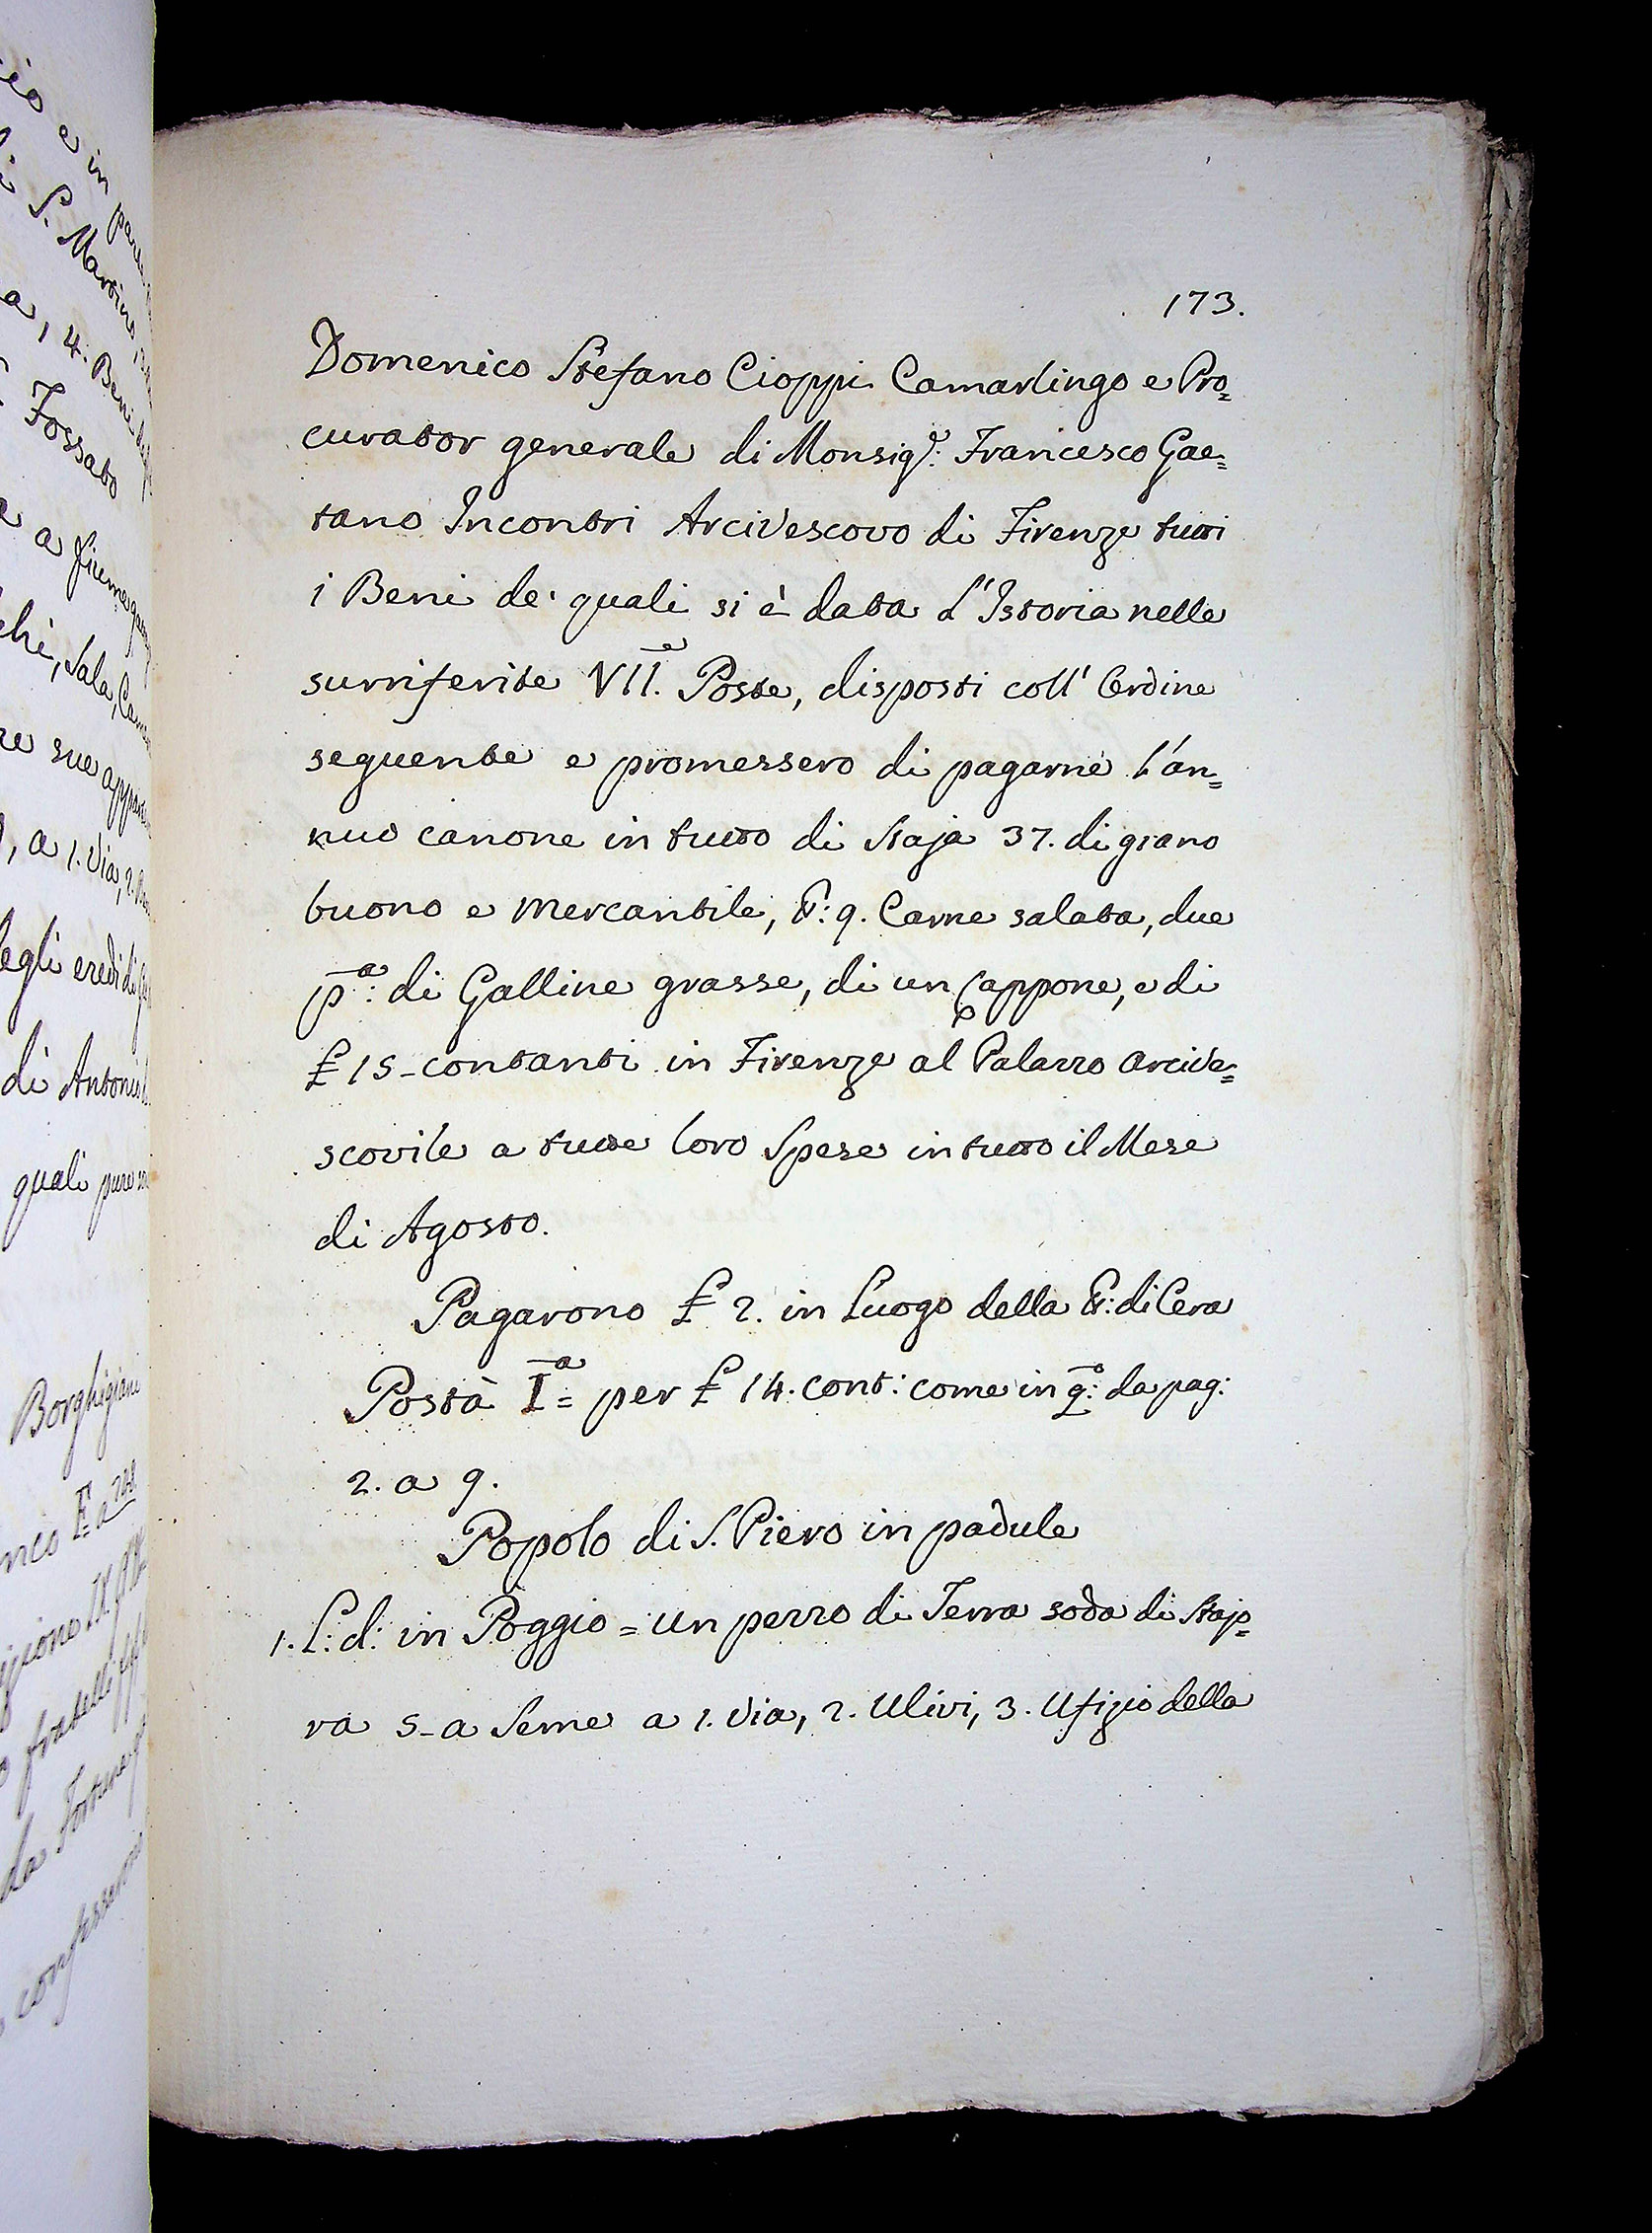 173.
Domenico Stefano Cioppi Camarlingo e Pro=
curator generale di Monsig.e: Francesco Gae=
tano Incontri Arcivescovo di Firenze tutti
i Beni de' quali si è data l'Istoria nelle
surriferite VII.e Poste, disposti coll' Ordine
seguente e promessero di pagarne l'an=
nuo canone in tutto di Staja 37. di grano
buono e mercantile, 9. Carne salata, due
p.a: di Galline grasse, di un Cappone, e di
£ 15 - contanti in Firenze al Palazzo Arcive=
scovile a tutte loro Spese in tutto il Mese
di Agosto.
Pagarono £ 2. in Luogo della di Cera
Posta I.a = per £ 14. cont: come in q.o: da pag:
2. a 9.
Popolo di S. Piero in padule
1. L: d: in Poggio = un pezzo di Terra soda di Stajo=
ra 5 - a Seme a 1. Via, 2. Ulivi, 3. Ufizio della
a, 4. Beni
Fossato
chi, Sala,
re sue
, a 1. Via, 2.
di Antonio
quali pure
Borghigiani